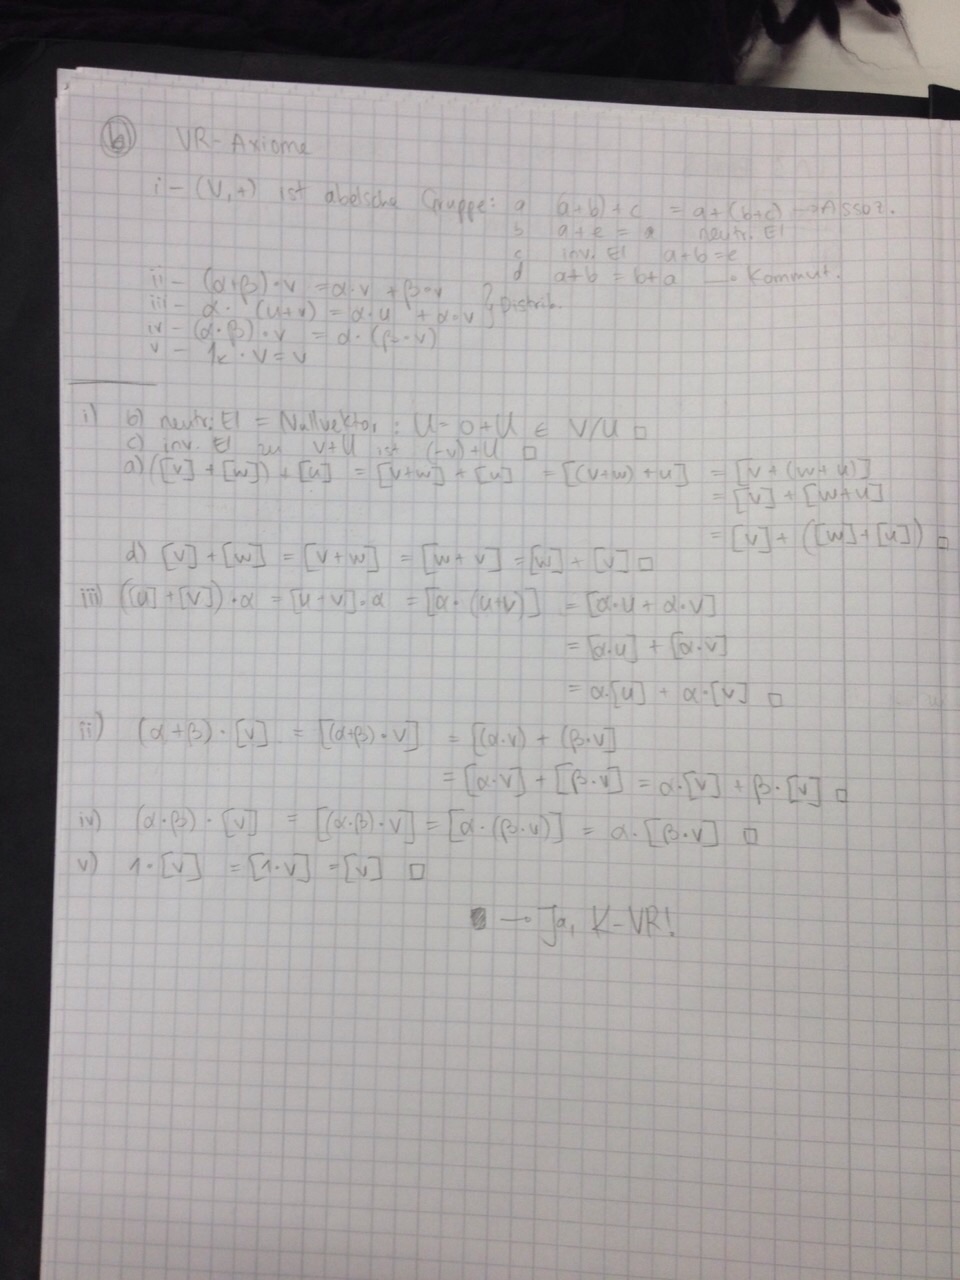 b) VR-Axiome
i - (V,+) ist abelsche Gruppe: a (a+b)+c = a+(b+c) → Assoz.
b a+e = a neutr. El
c inv. El a+b=e
d a+b = b+a → Kommut.
ii - (α+β)·v = α·v + β·v
iii - α·(u+v) = α·u + α·v } Distrib.
iv - (α·β)·v = α·(β·v)
v - 1k · v = v
i) b) neutr. El = Nullvektor : U = 0+U ∈ V/U □
c) inv. El zu v+U ist (-v)+U □
a) ([v] + [w]) + [u] = [v+w] + [u] = [(v+w)+u] = [v+(w+u)]
= [v] + [w+u]
= [v] + ([w]+[u]) □
d) [v] + [w] = [v+w] = [w+v] = [w] + [v] □
iii) ([u] + [v])·α = [u+v]·α = [α·(u+v)] = [α·u + α·v]
= [α·u] + [α·v]
= α·[u] + α·[v] □
ii) (α+β)·[v] = [(α+β)·v] = [(α·v) + (β·v]
= [α·v] + [β·v] = α·[v] + β·[v] □
iv) (α·β)·[v] = [(α·β)·v] = [α·(β·v)] = α·[β·v] □
v) 1·[v] = [1·v] = [v] □
→ Ja, K-VR!